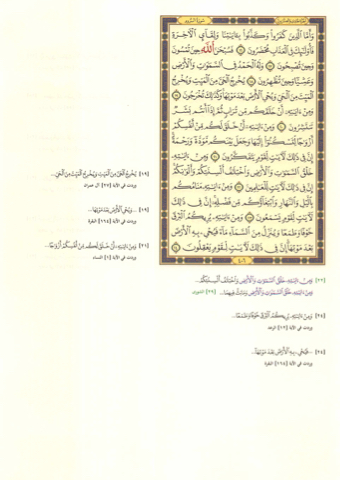 سورة الروم
وَأَمَّا الَّذِينَ كَفَرُوا وَكَذَّبُوا بِآيَاتِنَا وَلِقَاءِ الْآخِرَةِ
فَأُولَٰئِكَ فِي الْعَذَابِ مُحْضَرُونَ ۝ فَسُبْحَانَ اللَّهِ حِينَ تُمْسُونَ
وَحِينَ تُصْبِحُونَ ۝ وَلَهُ الْحَمْدُ فِي السَّمَاوَاتِ وَالْأَرْضِ
وَعَشِيًّا وَحِينَ تُظْهِرُونَ ۝ يُخْرِجُ الْحَيَّ مِنَ الْمَيِّتِ وَيُخْرِجُ
الْمَيِّتَ مِنَ الْحَيِّ وَيُحْيِي الْأَرْضَ بَعْدَ مَوْتِهَا وَكَذَٰلِكَ تُخْرَجُونَ ۝
وَمِنْ آيَاتِهِ أَنْ خَلَقَكُمْ مِنْ تُرَابٍ ثُمَّ إِذَا أَنْتُمْ بَشَرٌ
تَنْتَشِرُونَ ۝ وَمِنْ آيَاتِهِ أَنْ خَلَقَ لَكُمْ مِنْ أَنْفُسِكُمْ
أَزْوَاجًا لِتَسْكُنُوا إِلَيْهَا وَجَعَلَ بَيْنَكُمْ مَوَدَّةً وَرَحْمَةً
إِنَّ فِي ذَٰلِكَ لَآيَاتٍ لِقَوْمٍ يَتَفَكَّرُونَ ۝ وَمِنْ آيَاتِهِ
خَلْقُ السَّمَاوَاتِ وَالْأَرْضِ وَاخْتِلَافُ أَلْسِنَتِكُمْ وَأَلْوَانِكُمْ
إِنَّ فِي ذَٰلِكَ لَآيَاتٍ لِلْعَالِمِينَ ۝ وَمِنْ آيَاتِهِ مَنَامُكُمْ
بِاللَّيْلِ وَالنَّهَارِ وَابْتِغَاؤُكُمْ مِنْ فَضْلِهِ إِنَّ فِي ذَٰلِكَ
لَآيَاتٍ لِقَوْمٍ يَسْمَعُونَ ۝ وَمِنْ آيَاتِهِ يُرِيكُمُ الْبَرْقَ
خَوْفًا وَطَمَعًا وَيُنَزِّلُ مِنَ السَّمَاءِ مَاءً فَيُحْيِي بِهِ الْأَرْضَ
بَعْدَ مَوْتِهَا إِنَّ فِي ذَٰلِكَ لَآيَاتٍ لِقَوْمٍ يَعْقِلُونَ ۝
٤٠٦
[١٩] يُخْرِجُ الْحَيَّ مِنَ الْمَيِّتِ وَيُخْرِجُ الْمَيِّتَ مِنَ الْحَيِّ...
وردت في الآية [٢٧] آل عمران
[١٩] ...وَيُحْيِي الْأَرْضَ بَعْدَ مَوْتِهَا...
وردت في الآية [١٦٤] البقرة
[٢١] وَمِنْ آيَاتِهِ أَنْ خَلَقَ لَكُمْ مِنْ أَنْفُسِكُمْ أَزْوَاجًا...
وردت في الآية [١] النساء
[٢٢] وَمِنْ آيَاتِهِ خَلْقُ السَّمَاوَاتِ وَالْأَرْضِ وَاخْتِلَافُ أَلْسِنَتِكُمْ...
وَمِنْ آيَاتِهِ خَلْقُ السَّمَاوَاتِ وَالْأَرْضِ وَمَا بَثَّ فِيهِمَا... [٢٩] الشورى
[٢٤] وَمِنْ آيَاتِهِ يُرِيكُمُ الْبَرْقَ خَوْفًا وَطَمَعًا...
وردت في الآية [١٢] الرعد
[٢٤] ...فَيُحْيِي بِهِ الْأَرْضَ بَعْدَ مَوْتِهَا...
وردت في الآية [١٦٤] البقرة